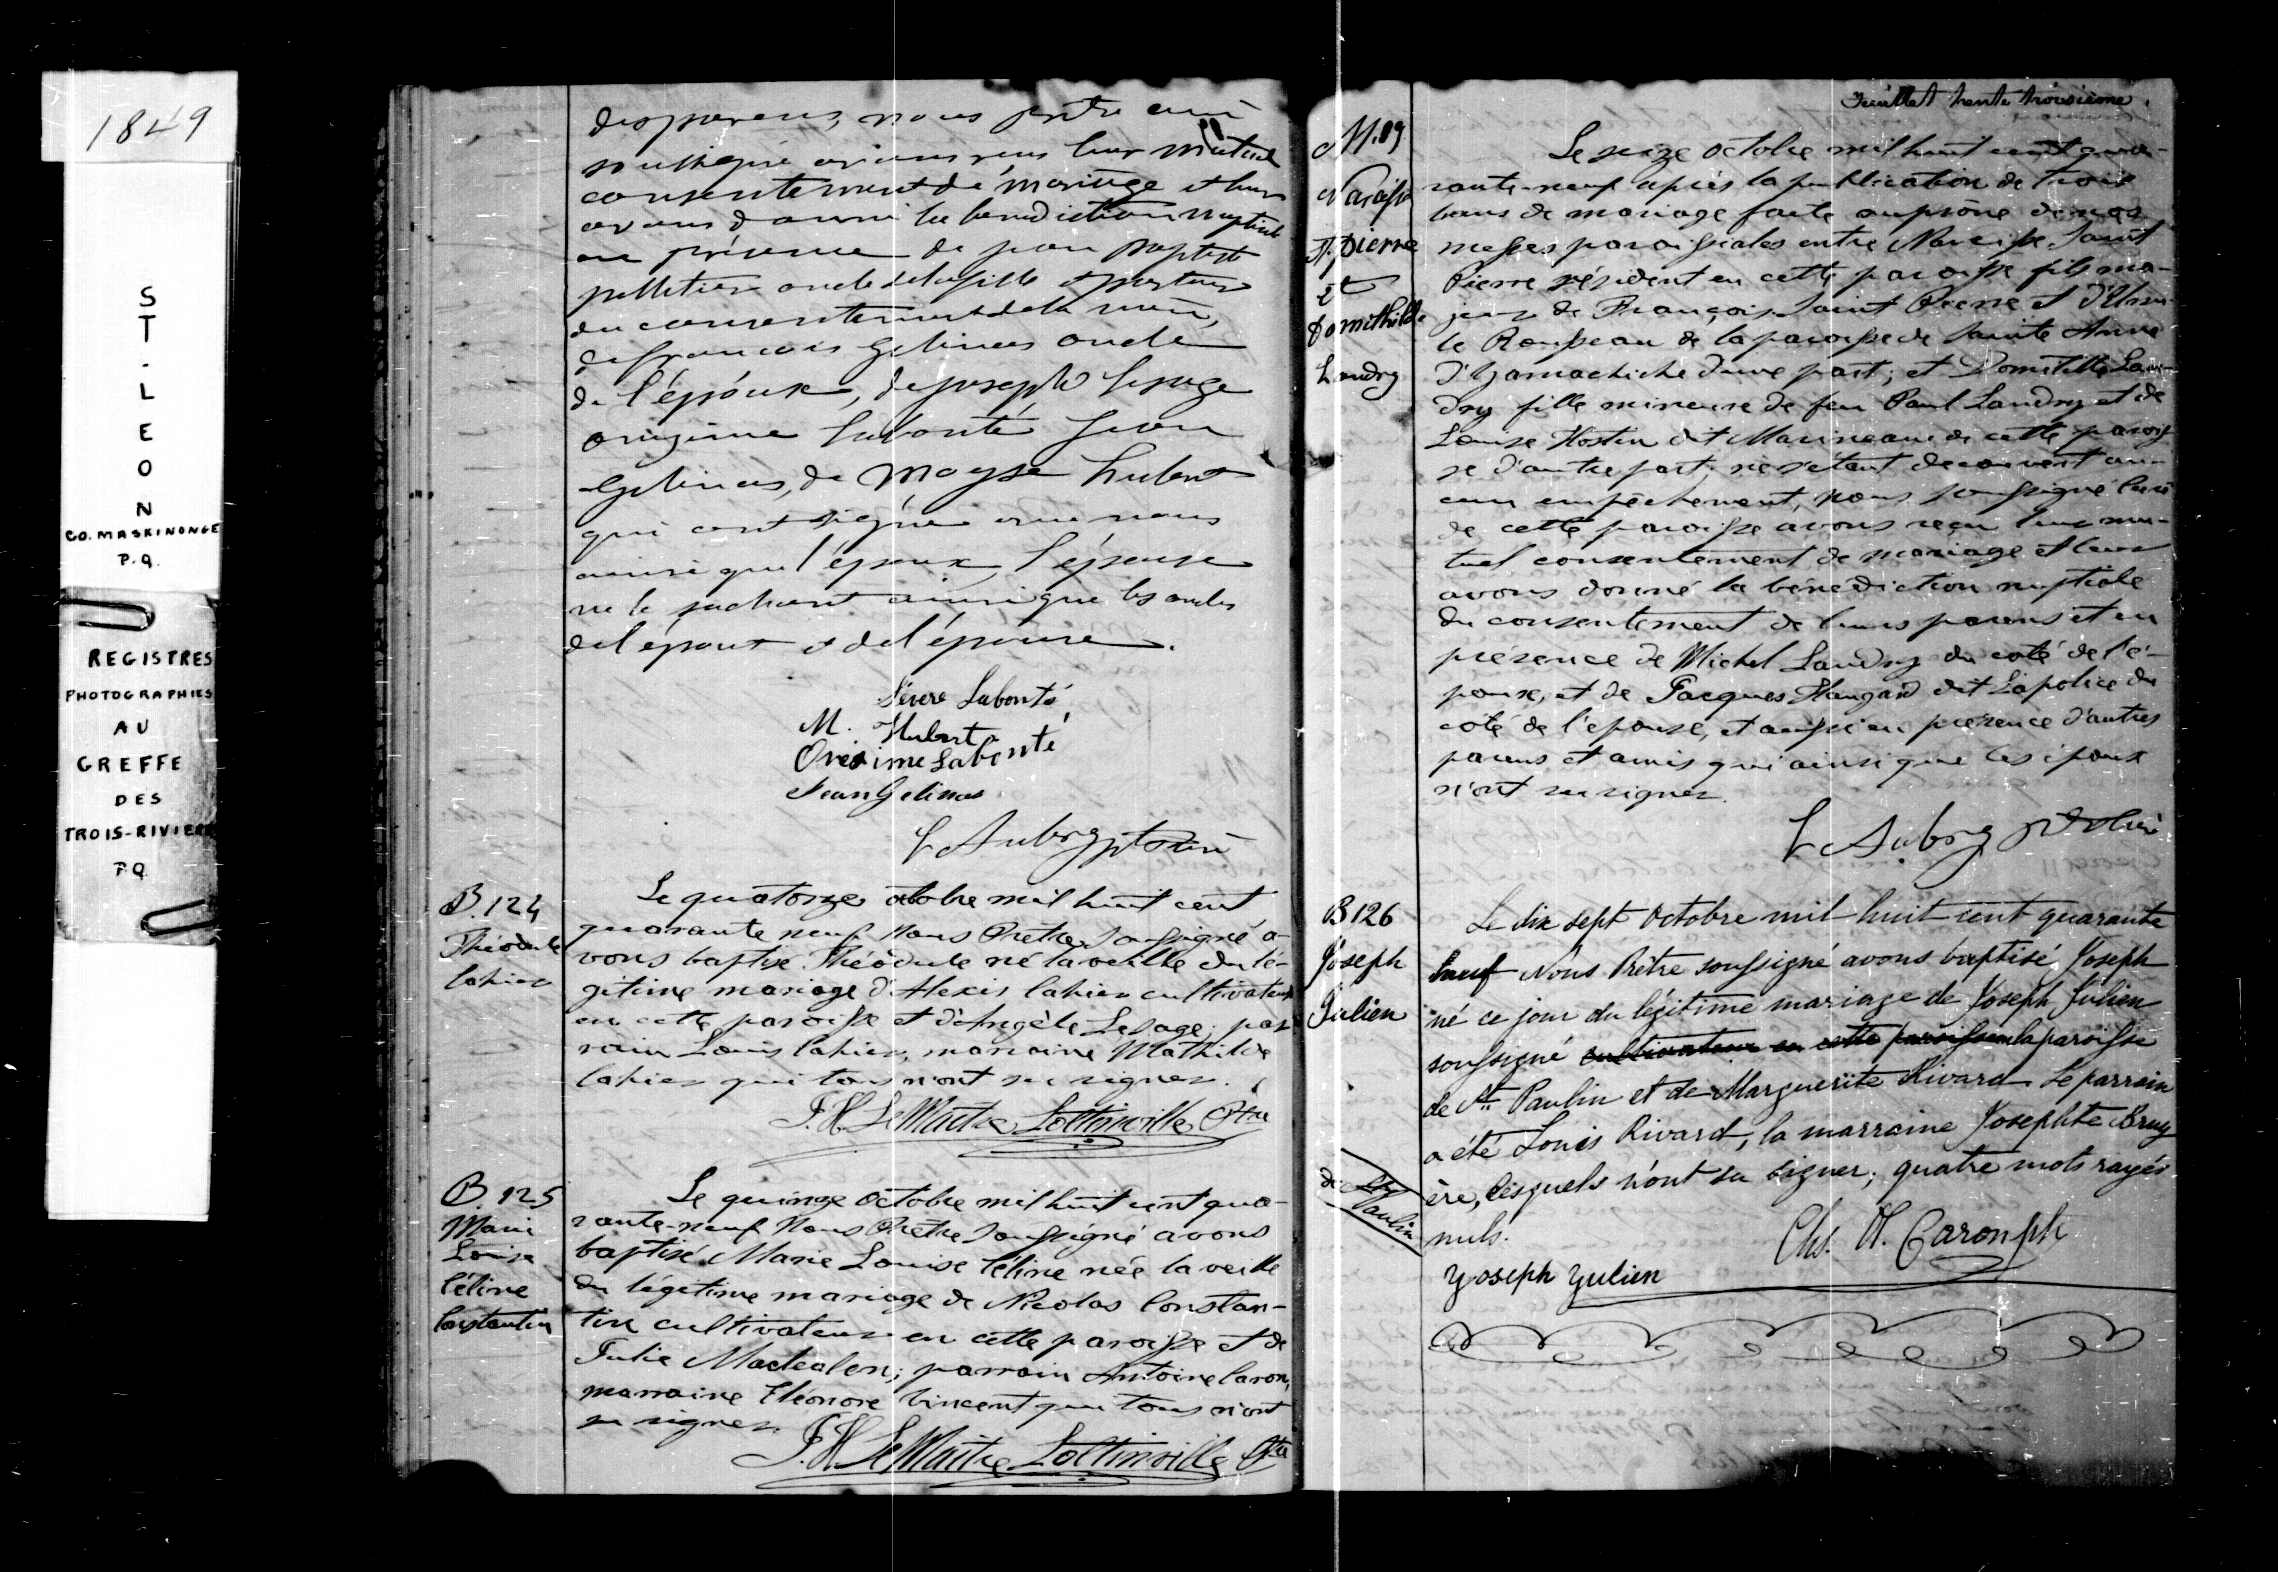 1849
ST. LEON
CO. MASKINONGE
P.Q.
REGISTRES
PHOTOGRAPHIES
AU
GREFFE
DES
TROIS-RIVIERES
P.Q.
des parens, nous prêtre curé
soussigné avons reçu leur mutuel
consentement de mariage et leur
avons donné la benediction nuptiale
en présence de jean Baptiste
pelletier oncle de la fille et porteur
du consentement de la mère,
de francois Gelinas oncle
de l'époux, de joseph lesage
onezime Labonté Jean
Gelinas, de Moyse hubert
qui ont signé avec nous
ainsi que l'époux l'épouse
ne le sachant ainsi que les oncles
de l'époux et de l'épouse.
Sévere Labonté
M. Hubert
Onesime Labonté
Jean Gelinas
L Aubry ptre curé
B. 124
Théodule
Cahier
Le quatorze octobre mil huit cent
quarante neuf Nous Prêtre Soussigné a-
vons baptisé Théodule né la veille du lé-
gitime mariage d'Alexis Cahier cultivateur
en cette paroisse et d'Angèle Lesage; par
rain Louis Cahier, marraine Mathilde
Cahier qui tous n'ont su signer.
F. H. LeMaitre Lottinville Ptre
B. 125
Marie
Louise
Céline
Constantin
Le quinze octobre mil huit cent qua-
rante-neuf Nous Prêtre Soussigné avons
baptisé Marie Louise Céline née la veille
du légitime mariage de Nicolas Constan-
tin cultivateur en cette paroisse et de
Julie ; parrain Antoine Caron,
marraine Eléonore Vincent qui tous n'ont
su signer.
F. H. LeMaitre Lottinville Ptre
Feuillet trente troisième.
M. 89
Narcisse
St. pierre
et
Domithilde
Landry
Le seize octobre mil huit cent qua-
rante-neuf après la publication de trois
bans de mariage faite au prône de nos
messes paroissiales entre Narcisse Saint
Pierre résident en cette paroisse fils ma-
jeur de François Saint Pierre et d'Ursu-
le Rousseau de la paroisse de Sainte Anne
d'Yamachiche d'une part; et Domitille Lan-
dry fille mineure de feu Paul Landry et de
Louise Hostin dit Marineau de cette parois
se d'autre part; ne s'étant decouvert au-
cun empêchement, nous soussigné Curé
de cette paroisse avons reçu leur mu-
tuel consentement de mariage et leur
avons donné la bénédiction nuptiale
du consentement de leurs parens et en
présence de Michel Landry du coté de l'é-
poux, et de Jacques dit Lapolice du
côté de l'épouse, et aussi en présence d'autres
parens et amis qui ainsi que les époux
n'ont su signer.
L Aubry ptre curé
B 126
Joseph
Julien
de St
Paulin
Le dix sept Octobre mil huit cent quarante
neuf Nous Prêtre soussigné avons baptisé Joseph
né ce jour du légitime mariage de Joseph Julien
soussigné cultivateur en cette paroisse en la paroisse
de St. Paulin et de Marguerite Rivard Le parrain
a été Louis Rivard, la marraine Josephte Bruy
ère, lesquels n'ont su signer; quatre mots rayés
nuls.
Chs. O. Caron ptre
Joseph Julien